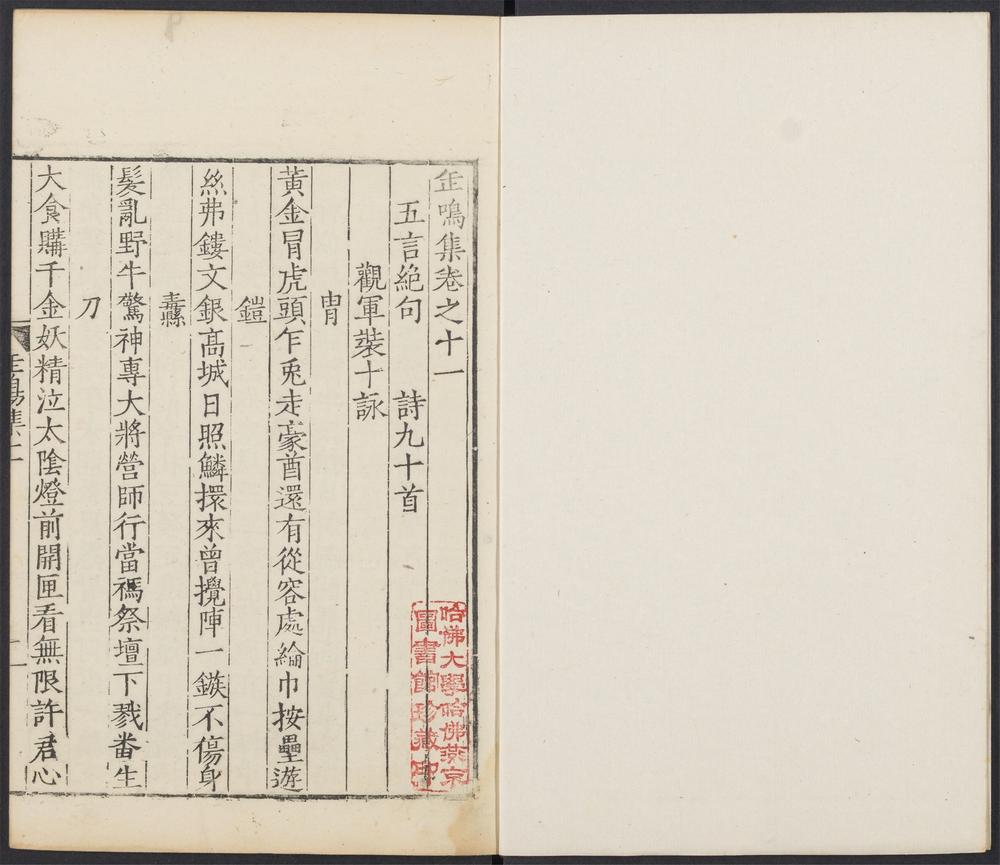 缶鳴集卷之十一
五言絶句　　詩九十首
觀軍裝十詠
冑
黃金冒虎頭乍兎走豪酋還有從容處綸巾按壘遊
鎧
絲弗鏤文銀高城日照鱗擐來曾攪陣一鏃不傷身
纛
髮亂野牛驚神專大將營師行當禡祭壇下戮畨生
刀
大食購千金妖精泣太隂燈前開匣看無限許君心
哈佛大學哈佛燕京
圖書館珍藏印